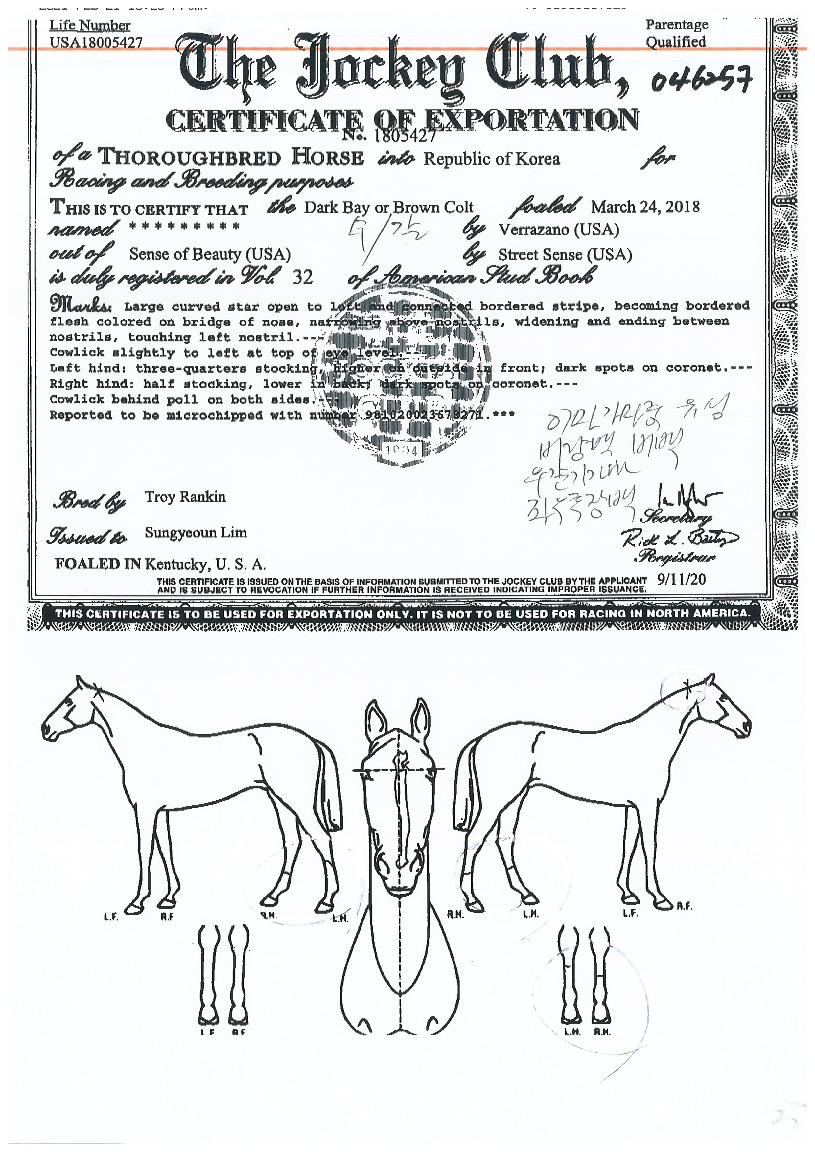 Life Number
USA18005427
Parentage
Qualified
The Jockey Club,
046257
CERTIFICATE OF EXPORTATION
No. 1805427
of a THOROUGHBRED HORSE into Republic of Korea for
Racing and Breeding purposes
THIS IS TO CERTIFY THAT the Dark Bay or Brown Colt foaled March 24, 2018
named * * * * * * * * * by Verrazano (USA)
out of Sense of Beauty (USA) by Street Sense (USA)
is duly registered in Vol. 32 of American Stud Book
Marks: Large curved star open to left and connected bordered stripe, becoming bordered
flesh colored on bridge of nose, narrowing above nostrils, widening and ending between
nostrils, touching left nostril.---
Cowlick slightly to left at top of eye level.---
Left hind: three-quarters stocking, higher on outside in front; dark spots on coronet.---
Right hind: half stocking, lower in back; dark spots on coronet.---
Cowlick behind poll on both sides.---
Reported to be microchipped with number 981020023678271.***
1894
Bred by Troy Rankin
Issued to Sungyeoun Lim
Secretary
Registrar
FOALED IN Kentucky, U. S. A.
THIS CERTIFICATE IS ISSUED ON THE BASIS OF INFORMATION SUBMITTED TO THE JOCKEY CLUB BY THE APPLICANT
AND IS SUBJECT TO REVOCATION IF FURTHER INFORMATION IS RECEIVED INDICATING IMPROPER ISSUANCE.
9/11/20
THIS CERTIFICATE IS TO BE USED FOR EXPORTATION ONLY. IT IS NOT TO BE USED FOR RACING IN NORTH AMERICA.
L.F. R.F R.H. L.H. R.H. L.H. L.F. R.F.
L.F R.F L.H. R.H.